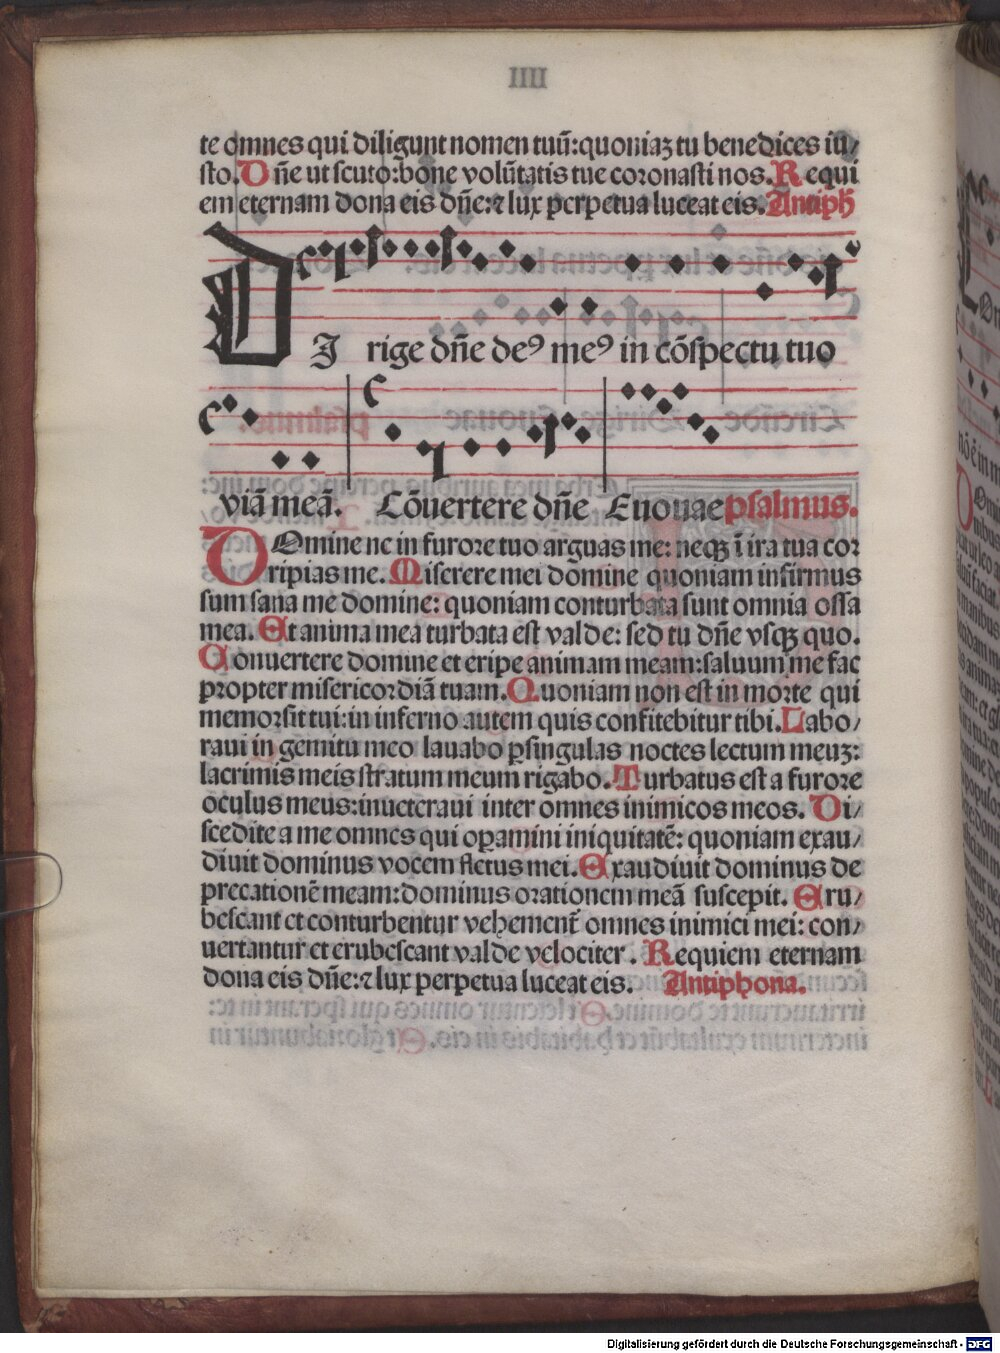 IIII
te omnes qui diligunt nomen tuũ: quoniaꝫ tu benedices iu/
sto. Dñe ut scuto: bone volũtatis tue coronasti nos. Requi
em eternam dona eis dñe: ⁊ lux perpetua luceat eis. Antiph
DI rige dñe deꝰ meꝰ in cõspectu tuo
viã meã. Cõuertere dñe Euouae psalmus.
DOmine ne in furore tuo arguas me: neqꝫ ĩ ira tua cor
ripias me. Miserere mei domine quoniam infirmus
sum sana me domine: quoniam conturbata sunt omnia ossa
mea. Et anima mea turbata est valde: sed tu dñe vsqꝫ quo.
Conuertere domine et eripe animam meam: saluum me fac
propter misericordiã tuam. Quoniam non est in morte qui
memor sit tui: in inferno autem quis confitebitur tibi. Labo/
raui in gemitu meo lauabo ꝑ singulas noctes lectum meuꝫ:
lacrimis meis stratum meum rigabo. Turbatus est a furore
oculus meus: inueteraui inter omnes inimicos meos. Di/
scedite a me omnes qui oꝑamini iniquitatẽ: quoniam exau/
diuit dominus vocem fletus mei. Exaudiuit dominus de
precationẽ meam: dominus orationem meã suscepit. Eru/
bescant et conturbentur vehemenť omnes inimici mei: con/
uertantur et erubescant valde velociter. Requiem eternam
dona eis dñe: ⁊ lux perpetua luceat eis. Antiphona.
Digitalisierung gefördert durch die Deutsche Forschungsgemeinschaft - DFG